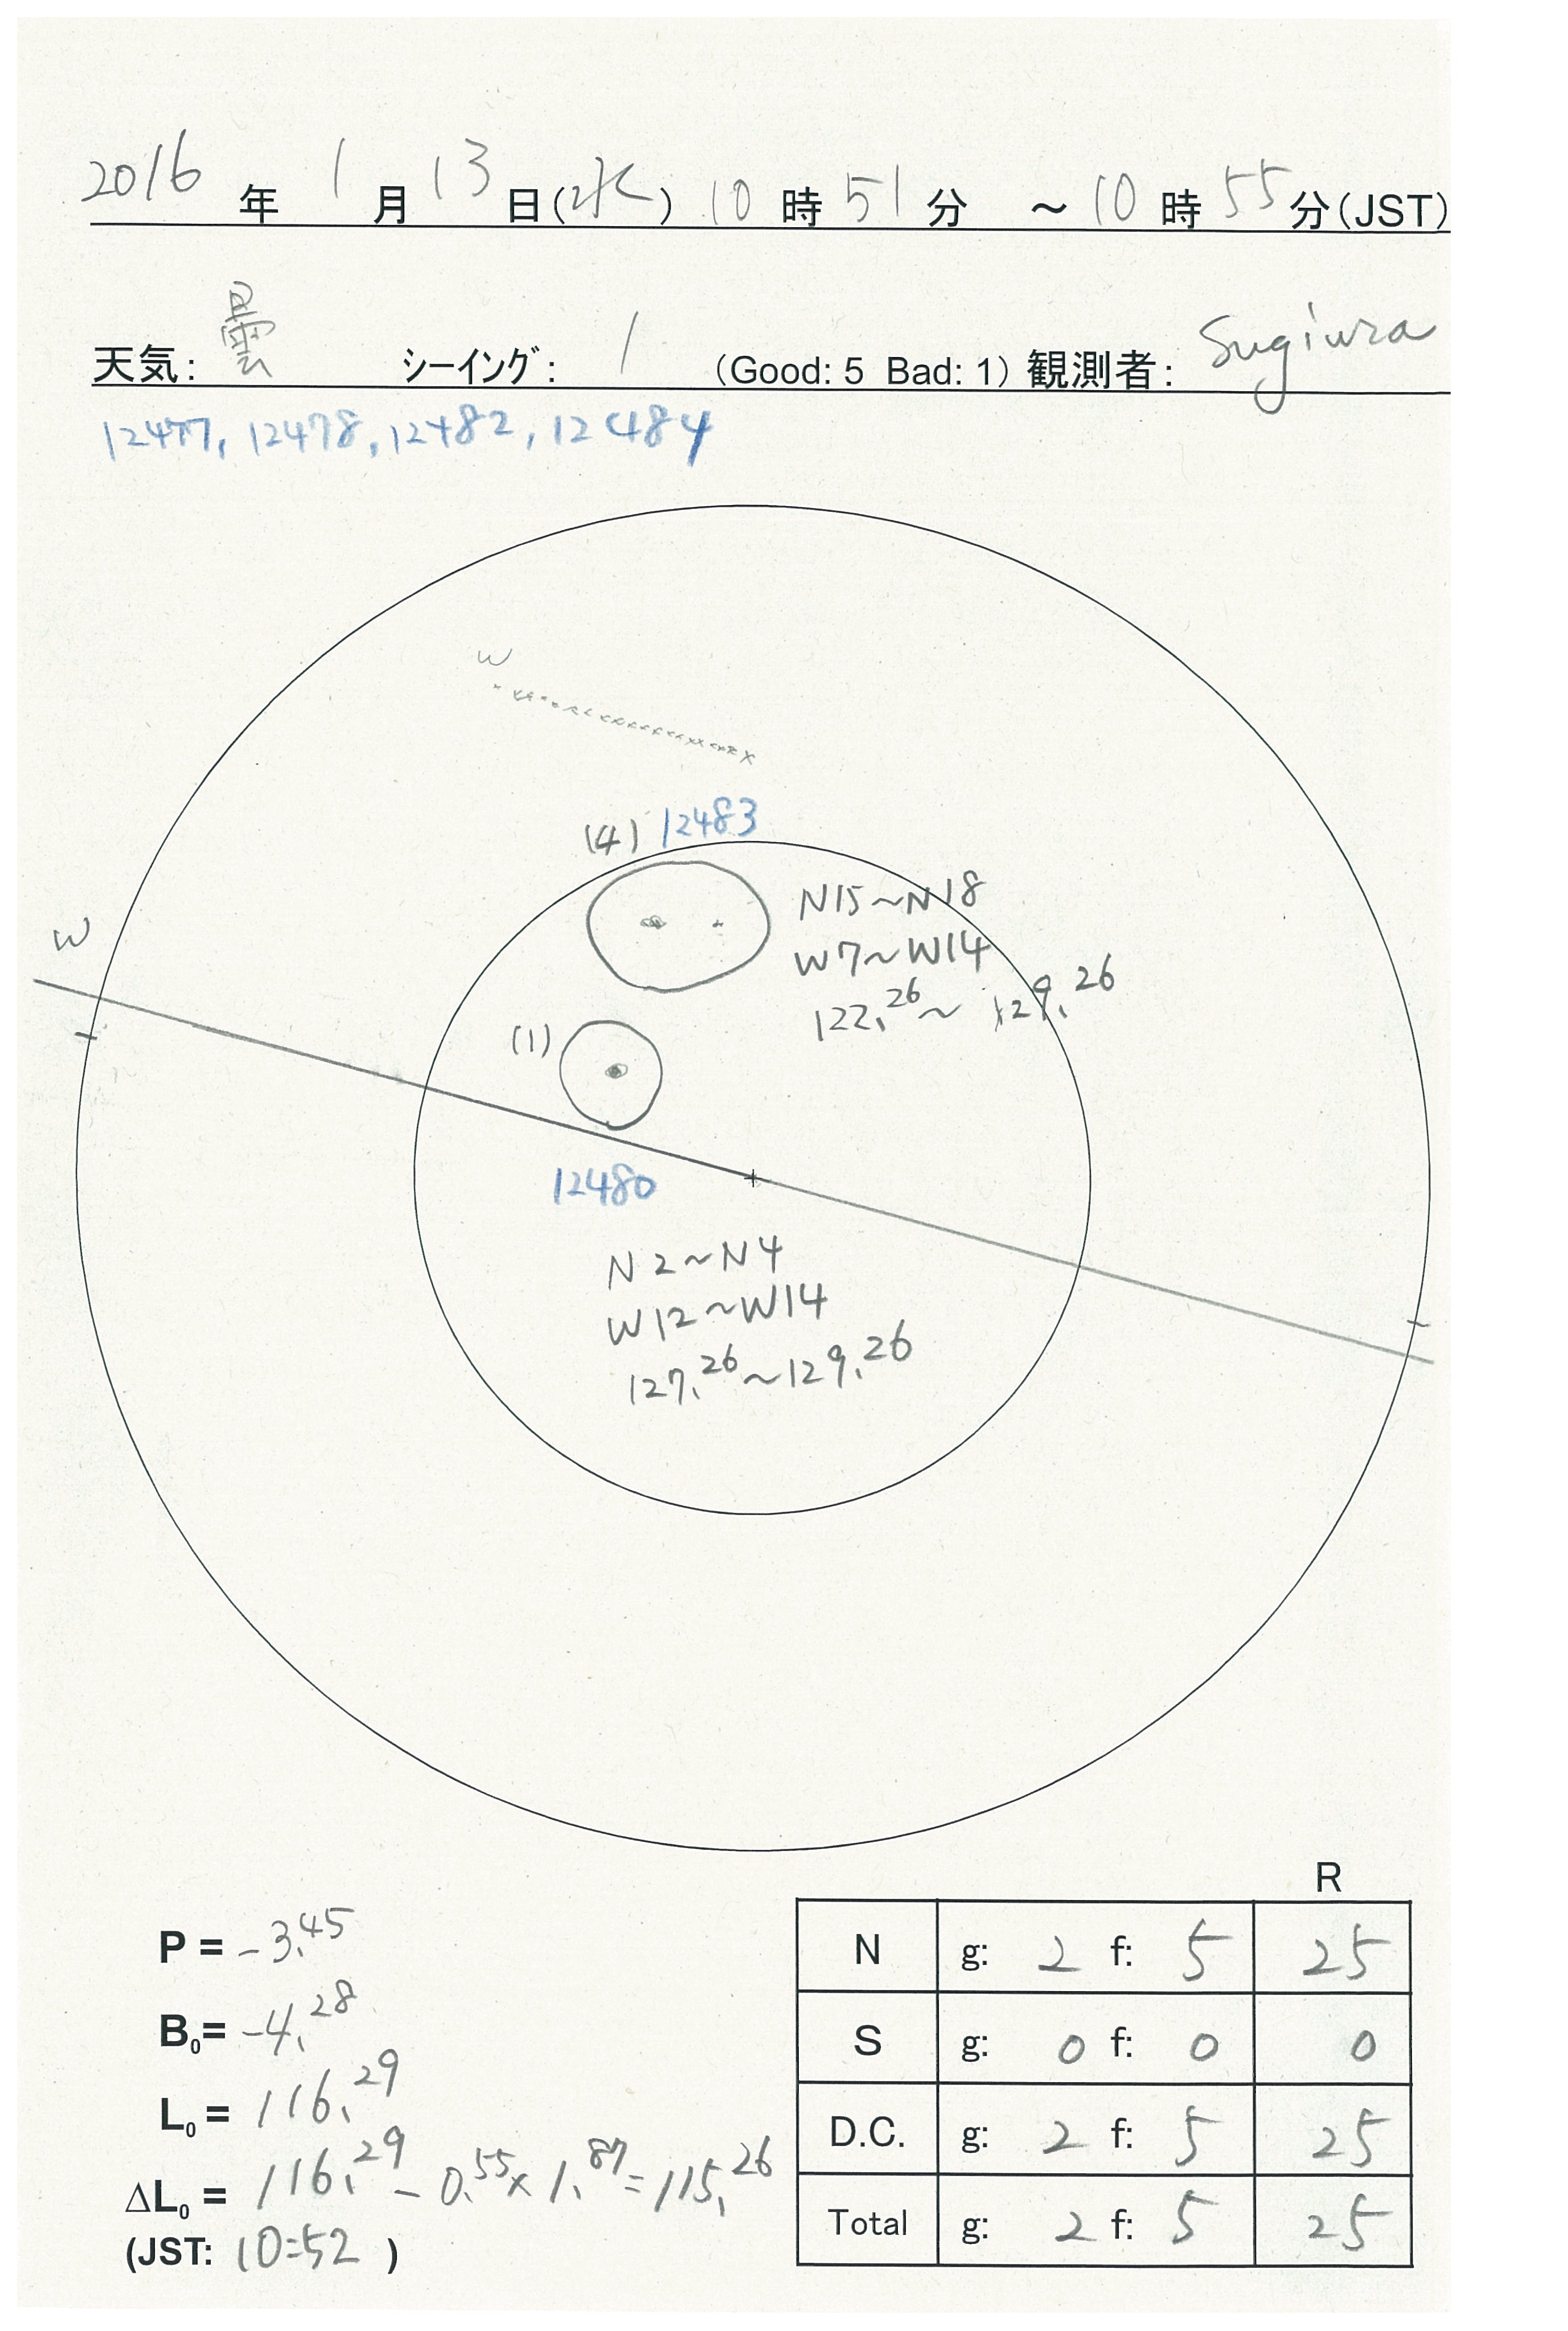 2016年 1月13日(水) 10時51分 ～10時55分(JST)
天気: 曇 シーイング: 1 (Good: 5 Bad: 1) 観測者: Sugiura
12477, 12478, 12482, 12484
W
(4) 12483
N15~N18
W
W7~W14
122.26~129.26
(1)
12480
N2~N4
W12~W14
127.26~129.26
R
P = -3.45
N g: 2 f: 5 25
B₀= -4.28
S g: 0 f: 0 0
L₀ = 116.29
D.C. g: 2 f: 5 25
ΔL₀ = 116.29 - 0.55 × 1.87 = 115.26
Total g: 2 f: 5 25
(JST: 10:52 )